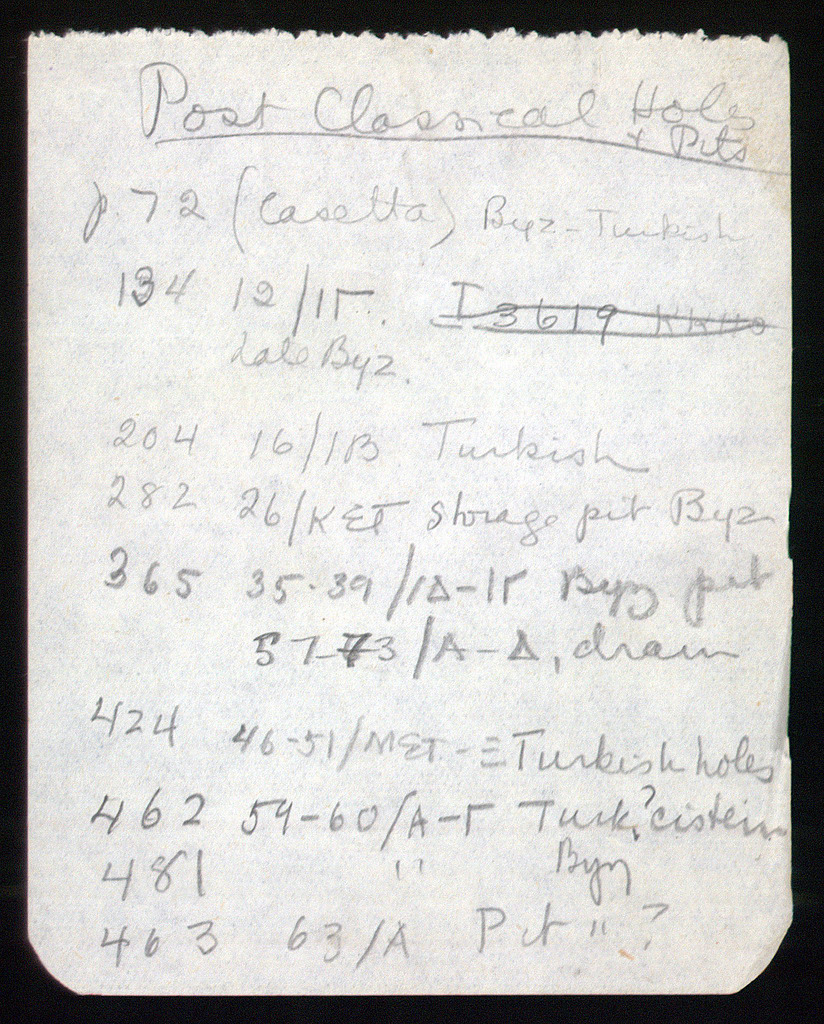 Post Classical Holes
+ Pits
p. 72 (Casetta) Byz-Turkish
134 12/ΙΓ. I 3619
Late Byz.
204 16/ΙΒ Turkish
282 26/ΚΣΤ Storage pit Byz
365 35-39/ΙΔ-ΙΓ Byz pit
57-73/Α-Δ, drain
424 46-51/ΜΣΤ-Ξ Turkish holes
462 59-60/Α-Γ Turk.? cistern
481 " Byz
463 63/Α Pit " ?